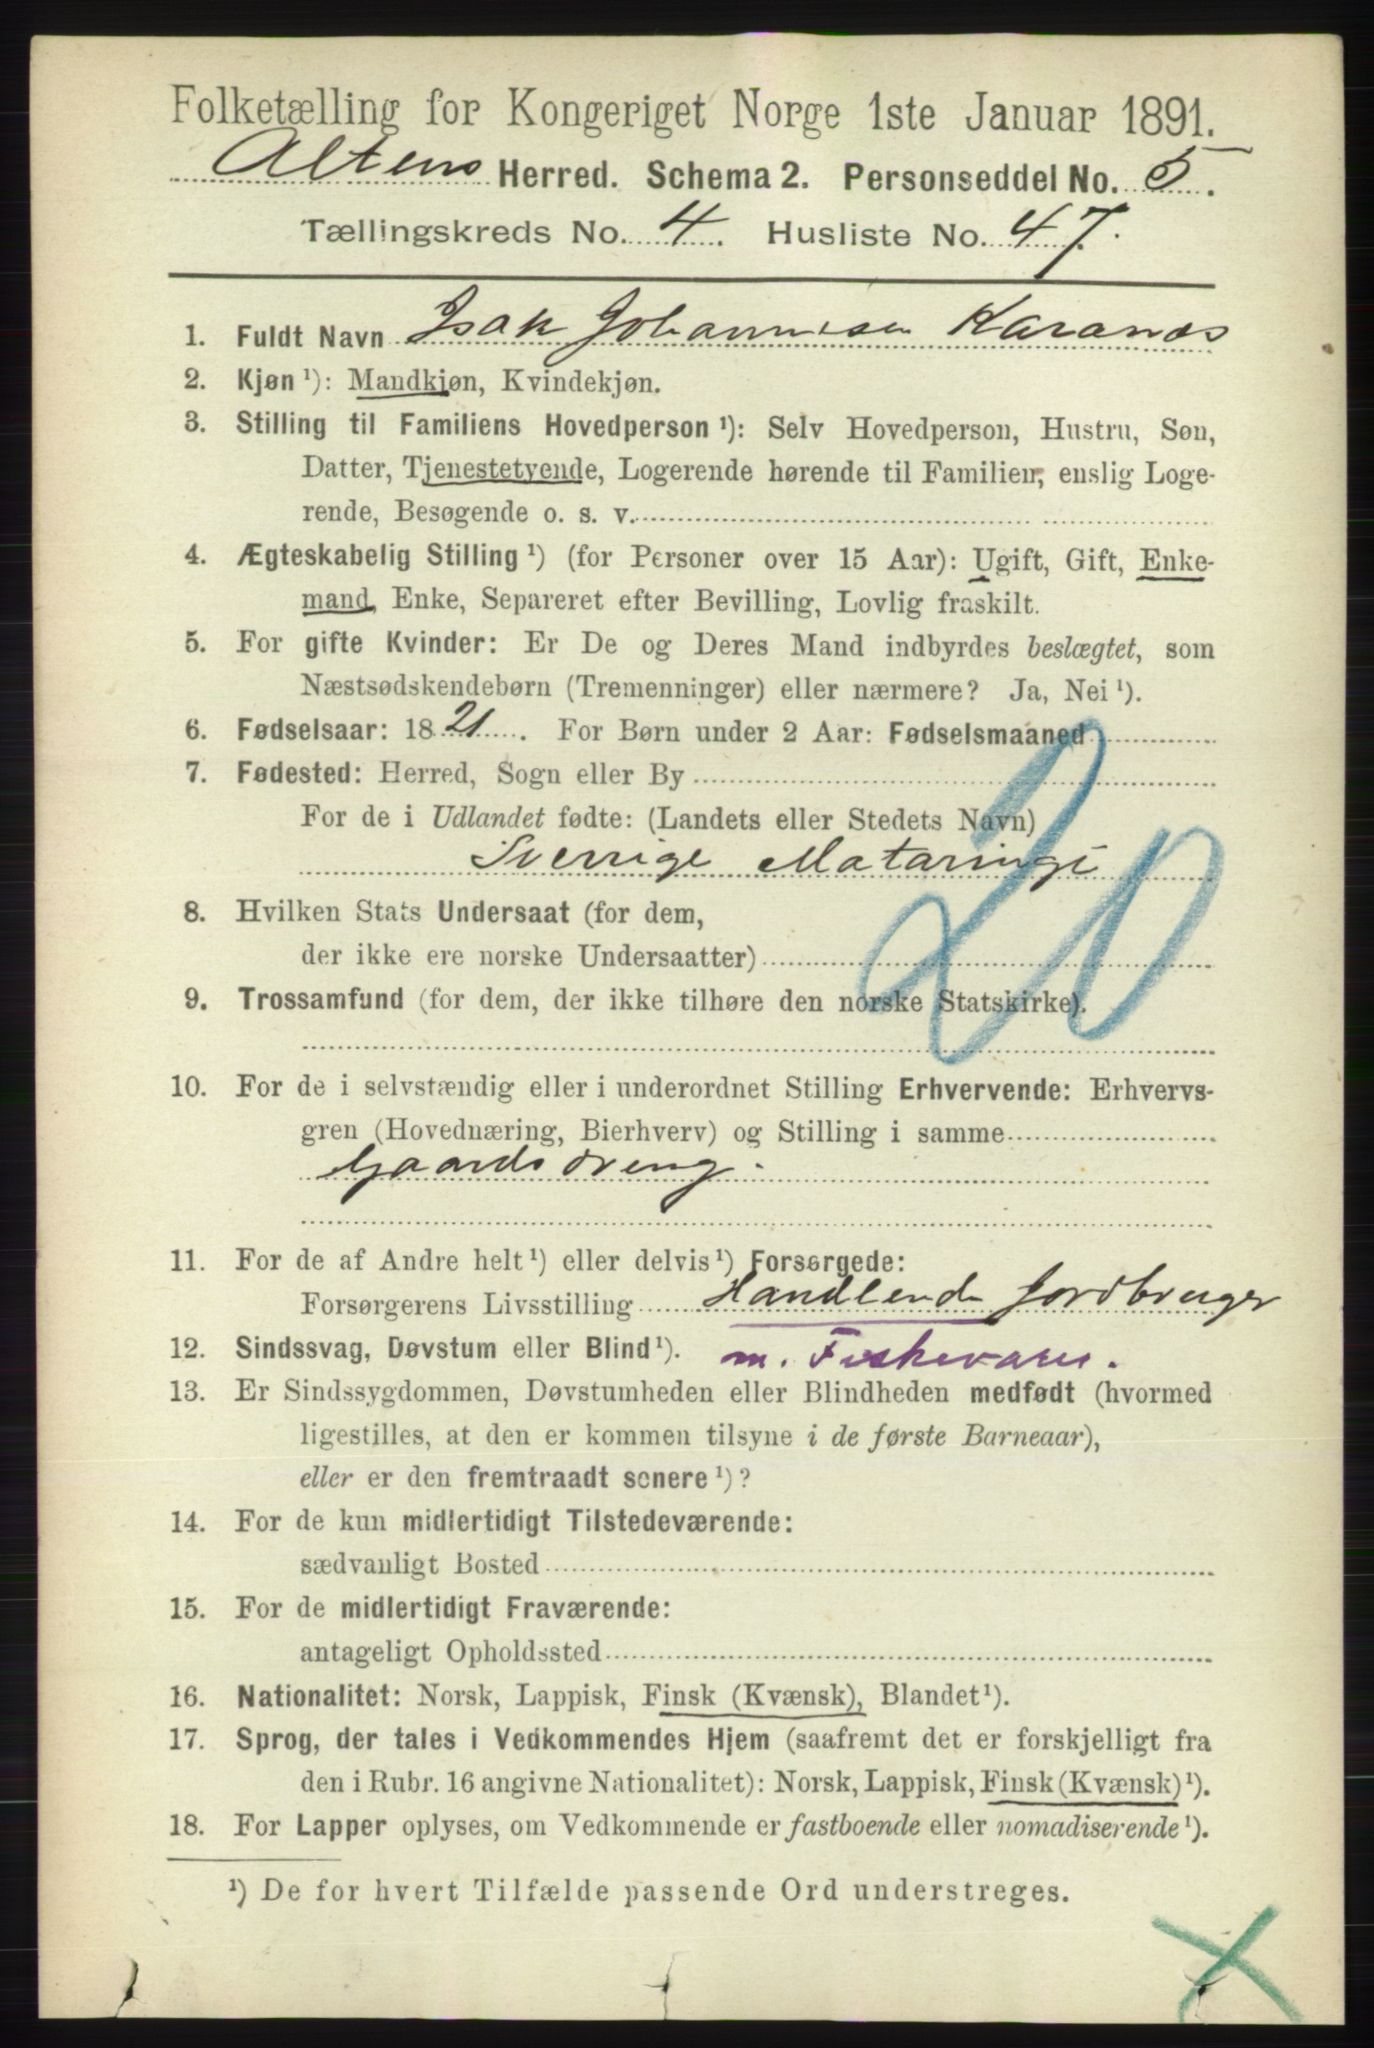 Folketælling for Kongeriget Norge 1ste Januar 1891.
Altens Herred. Schema 2. Personseddel No. 5.
Tællingskreds No. 4. Husliste No. 47.
1. Fuldt Navn Isak Johannesen Karanæs
2. Kjøn ¹): Mandkjøn, Kvindekjøn.
3. Stilling til Familiens Hovedperson ¹): Selv Hovedperson, Hustru, Søn,
Datter, Tjenestetyende, Logerende hørende til Familien, enslig Loge-
rende, Besøgende o. s. v.
4. Ægteskabelig Stilling ¹) (for Personer over 15 Aar): Ugift, Gift, Enke-
mand, Enke, Separeret efter Bevilling, Lovlig fraskilt.
5. For gifte Kvinder: Er De og Deres Mand indbyrdes beslægtet, som
Næstsødskendebørn (Tremenninger) eller nærmere? Ja, Nei ¹).
6. Fødselsaar: 1821. For Børn under 2 Aar: Fødselsmaaned
7. Fødested: Herred, Sogn eller By
For de i Udlandet fødte: (Landets eller Stedets Navn)
Sverrige Mataringi
20
8. Hvilken Stats Undersaat (for dem,
der ikke ere norske Undersaatter)
9. Trossamfund (for dem, der ikke tilhøre den norske Statskirke).
10. For de i selvstændig eller i underordnet Stilling Erhvervende: Erhvervs-
gren (Hovednæring, Bierhverv) og Stilling i samme
Gaardsdreng.
11. For de af Andre helt ¹) eller delvis ¹) Forsørgede:
Forsørgerens Livsstilling Handlende Jordbruger
12. Sindssvag, Døvstum eller Blind ¹). m. Fiskevarer.
13. Er Sindssygdommen, Døvstumheden eller Blindheden medfødt (hvormed
ligestilles, at den er kommen tilsyne i de første Barneaar),
eller er den fremtraadt senere ¹)?
14. For de kun midlertidigt Tilstedeværende:
sædvanligt Bosted
15. For de midlertidigt Fraværende:
antageligt Opholdssted
16. Nationalitet: Norsk, Lappisk, Finsk (Kvænsk), Blandet ¹).
17. Sprog, der tales i Vedkommendes Hjem (saafremt det er forskjelligt fra
den i Rubr. 16 angivne Nationalitet): Norsk, Lappisk, Finsk (Kvænsk) ¹).
18. For Lapper oplyses, om Vedkommende er fastboende eller nomadiserende ¹).
¹) De for hvert Tilfælde passende Ord understreges.